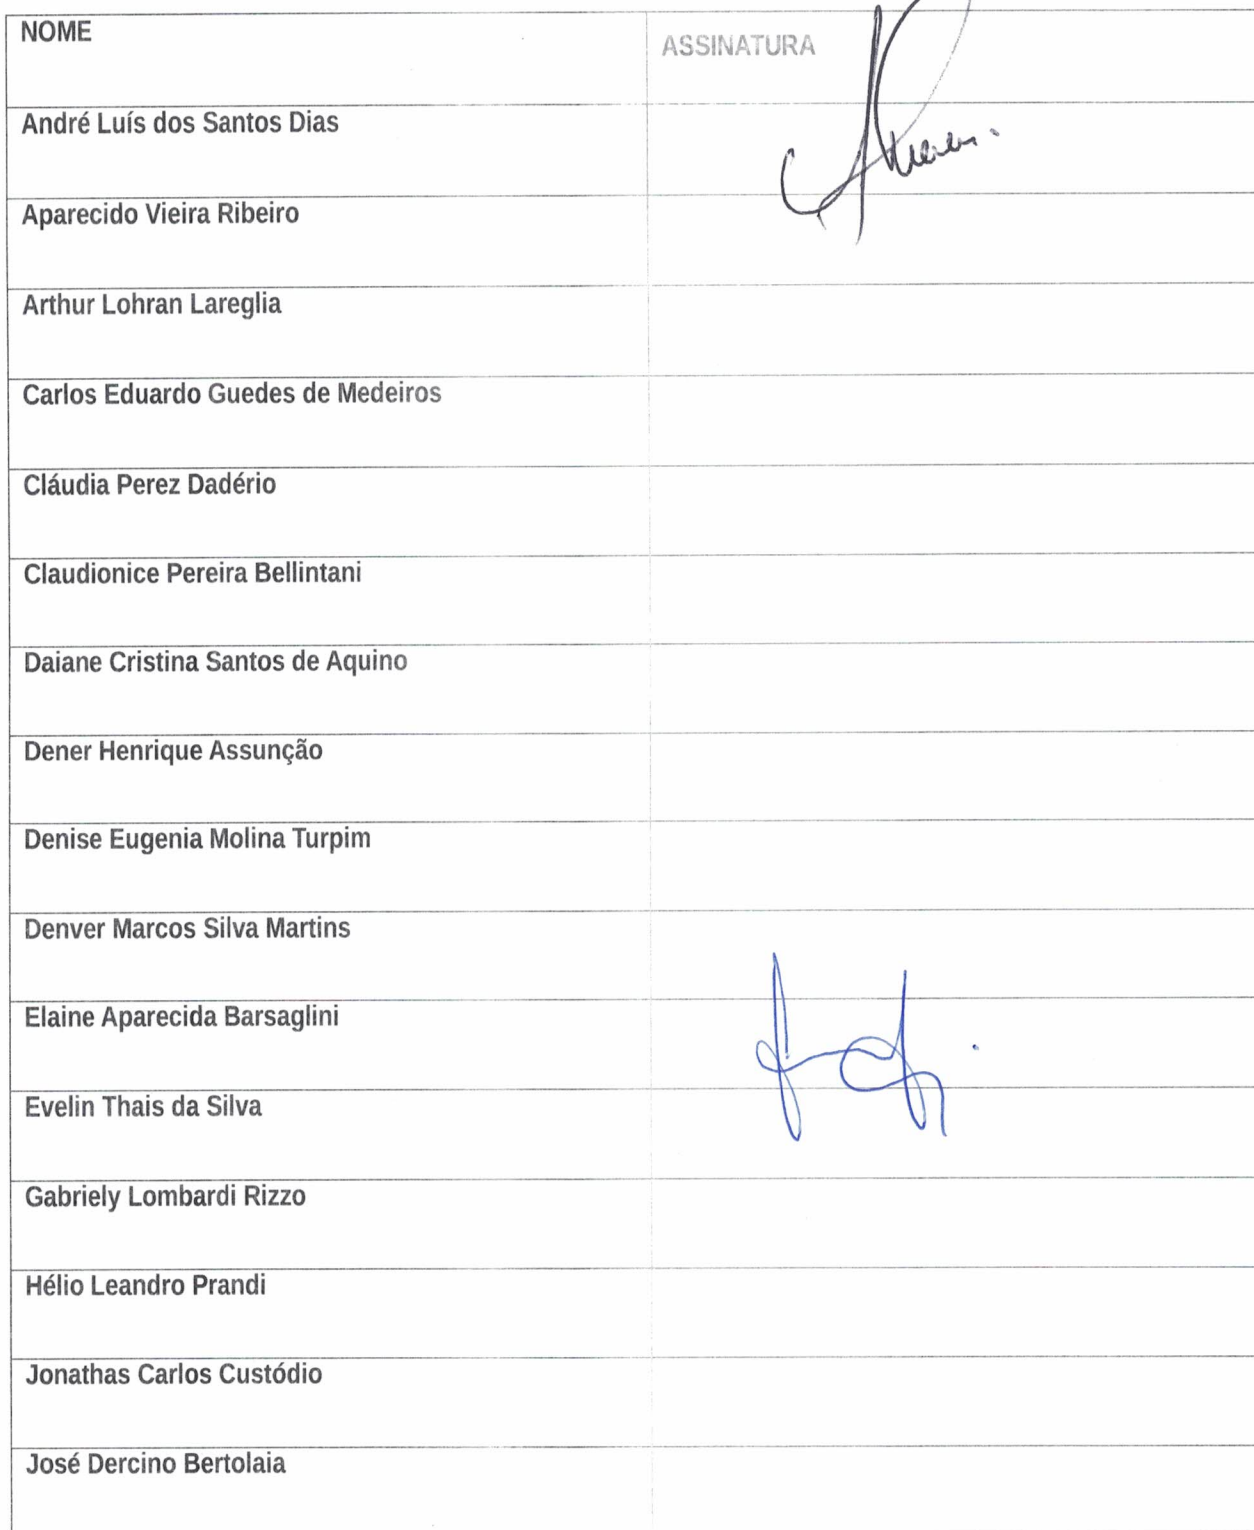 NOME
ASSINATURA
André Luís dos Santos Dias
Aparecido Vieira Ribeiro
Arthur Lohran Lareglia
Carlos Eduardo Guedes de Medeiros
Cláudia Perez Dadério
Claudionice Pereira Bellintani
Daiane Cristina Santos de Aquino
Dener Henrique Assunção
Denise Eugenia Molina Turpim
Denver Marcos Silva Martins
Elaine Aparecida Barsaglini
Evelin Thais da Silva
Gabriely Lombardi Rizzo
Hélio Leandro Prandi
Jonathas Carlos Custódio
José Dercino Bertolaia